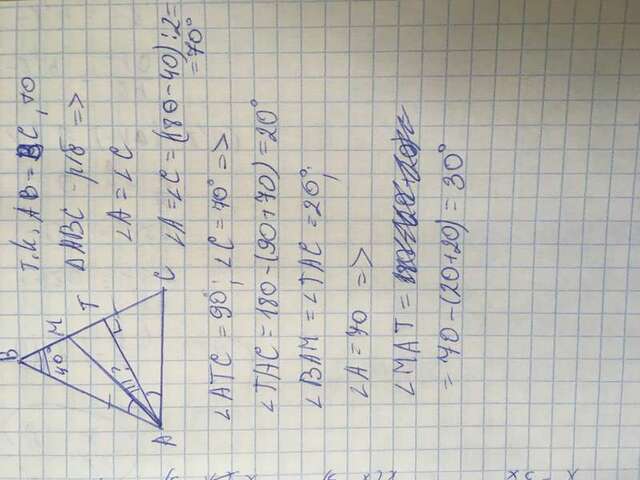 B
40°
M
T
?
A
C
Т.К. AB = BC, то
△ABC - р/б =>
∠A = ∠C
∠A = ∠C = (180 - 40) : 2 =
= 70°
∠ATC = 90°; ∠C = 70° =>
∠TAC = 180 - (90 + 70) = 20°
∠BAM = ∠TAC = 20°;
∠A = 70 =>
∠MAT =
= 70 - (20 + 20) = 30°